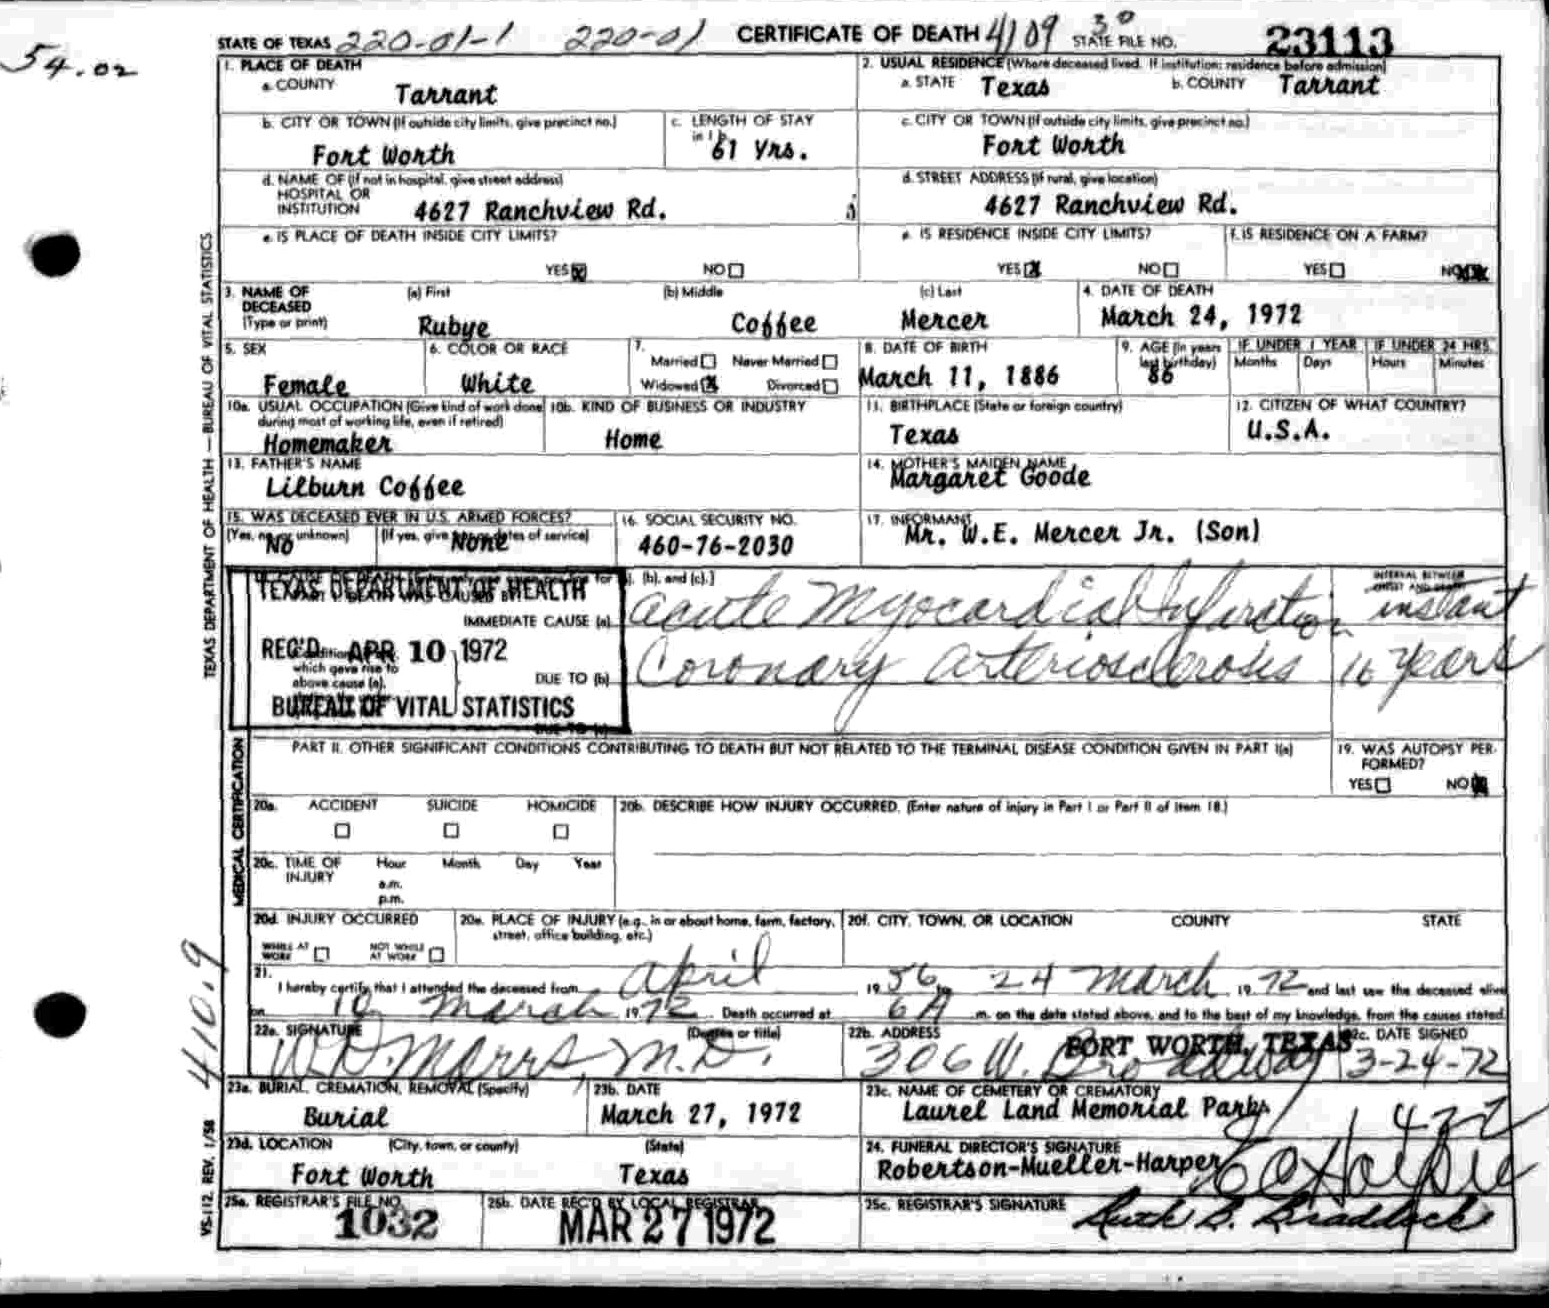 54.02
STATE OF TEXAS 220-01-1 220-01 CERTIFICATE OF DEATH 4109 30 STATE FILE NO. 23113
1. PLACE OF DEATH
a. COUNTY Tarrant
2. USUAL RESIDENCE (Where deceased lived. If institution: residence before admission)
a. STATE Texas b. COUNTY Tarrant
b. CITY OR TOWN (If outside city limits, give precinct no.) Fort Worth
c. LENGTH OF STAY in 1 b. 61 Yrs.
c. CITY OR TOWN (If outside city limits, give precinct no.) Fort Worth
d. NAME OF (If not in hospital, give street address) HOSPITAL OR INSTITUTION 4627 Ranchview Rd.
d. STREET ADDRESS (If rural, give location) 4627 Ranchview Rd.
e. IS PLACE OF DEATH INSIDE CITY LIMITS?
YES NO
e. IS RESIDENCE INSIDE CITY LIMITS?
YES NO
f. IS RESIDENCE ON A FARM?
YES NO
3. NAME OF DECEASED (Type or print)
(a) First Rubye (b) Middle Coffee (c) Last Mercer
4. DATE OF DEATH March 24, 1972
5. SEX Female
6. COLOR OR RACE White
7. Married Never Married
Widowed Divorced
8. DATE OF BIRTH March 11, 1886
9. AGE (in years last birthday) 86
IF UNDER 1 YEAR Months Days
IF UNDER 24 HRS. Hours Minutes
10a. USUAL OCCUPATION (Give kind of work done during most of working life, even if retired) Homemaker
10b. KIND OF BUSINESS OR INDUSTRY Home
11. BIRTHPLACE (State or foreign country) Texas
12. CITIZEN OF WHAT COUNTRY? U.S.A.
13. FATHER'S NAME Lilburn Coffee
14. MOTHER'S MAIDEN NAME Margaret Goode
15. WAS DECEASED EVER IN U.S. ARMED FORCES?
(Yes, no or unknown) No (If yes, give war or dates of service) None
16. SOCIAL SECURITY NO. 460-76-2030
17. INFORMANT Mr. W.E. Mercer Jr. (Son)
TEXAS DEPARTMENT OF HEALTH
REC'D APR 10 1972
BUREAU OF VITAL STATISTICS
(b), and (c).]
INTERVAL BETWEEN ONSET AND DEATH
IMMEDIATE CAUSE (a) Acute Myocardial Infarction instant
which gave rise to above cause (a),
DUE TO (b) Coronary Arteriosclerosis 16 Years
DUE TO (c)
PART II. OTHER SIGNIFICANT CONDITIONS CONTRIBUTING TO DEATH BUT NOT RELATED TO THE TERMINAL DISEASE CONDITION GIVEN IN PART I(a)
19. WAS AUTOPSY PERFORMED?
YES NO
20a. ACCIDENT SUICIDE HOMICIDE
20b. DESCRIBE HOW INJURY OCCURRED. (Enter nature of injury in Part I or Part II of item 18.)
20c. TIME OF INJURY Hour Month Day Year
a.m.
p.m.
20d. INJURY OCCURRED
WHILE AT WORK NOT WHILE AT WORK
20e. PLACE OF INJURY (e.g., in or about home, farm, factory, street, office building, etc.)
20f. CITY, TOWN, OR LOCATION COUNTY STATE
21. I hereby certify that I attended the deceased from April 1956 to 24 March, 1972 and last saw the deceased alive
on 10 March 1972. Death occurred at 6 A m. on the date stated above, and to the best of my knowledge, from the causes stated.
22a. SIGNATURE (Degree or title) W.D. Marrs, M.D.
22b. ADDRESS 306 W. Broadway FORT WORTH, TEXAS
22c. DATE SIGNED 3-24-72
23a. BURIAL, CREMATION, REMOVAL (Specify) Burial
23b. DATE March 27, 1972
23c. NAME OF CEMETERY OR CREMATORY Laurel Land Memorial Park
23d. LOCATION (City, town, or county) (State)
Fort Worth Texas
24. FUNERAL DIRECTOR'S SIGNATURE
Robertson-Mueller-Harper
25a. REGISTRAR'S FILE NO. 1032
25b. DATE REC'D BY LOCAL REGISTRAR MAR 27 1972
25c. REGISTRAR'S SIGNATURE Ruth B. Braddock
TEXAS DEPARTMENT OF HEALTH — BUREAU OF VITAL STATISTICS
MEDICAL CERTIFICATION
410.9
VS-112 REV. 1/58